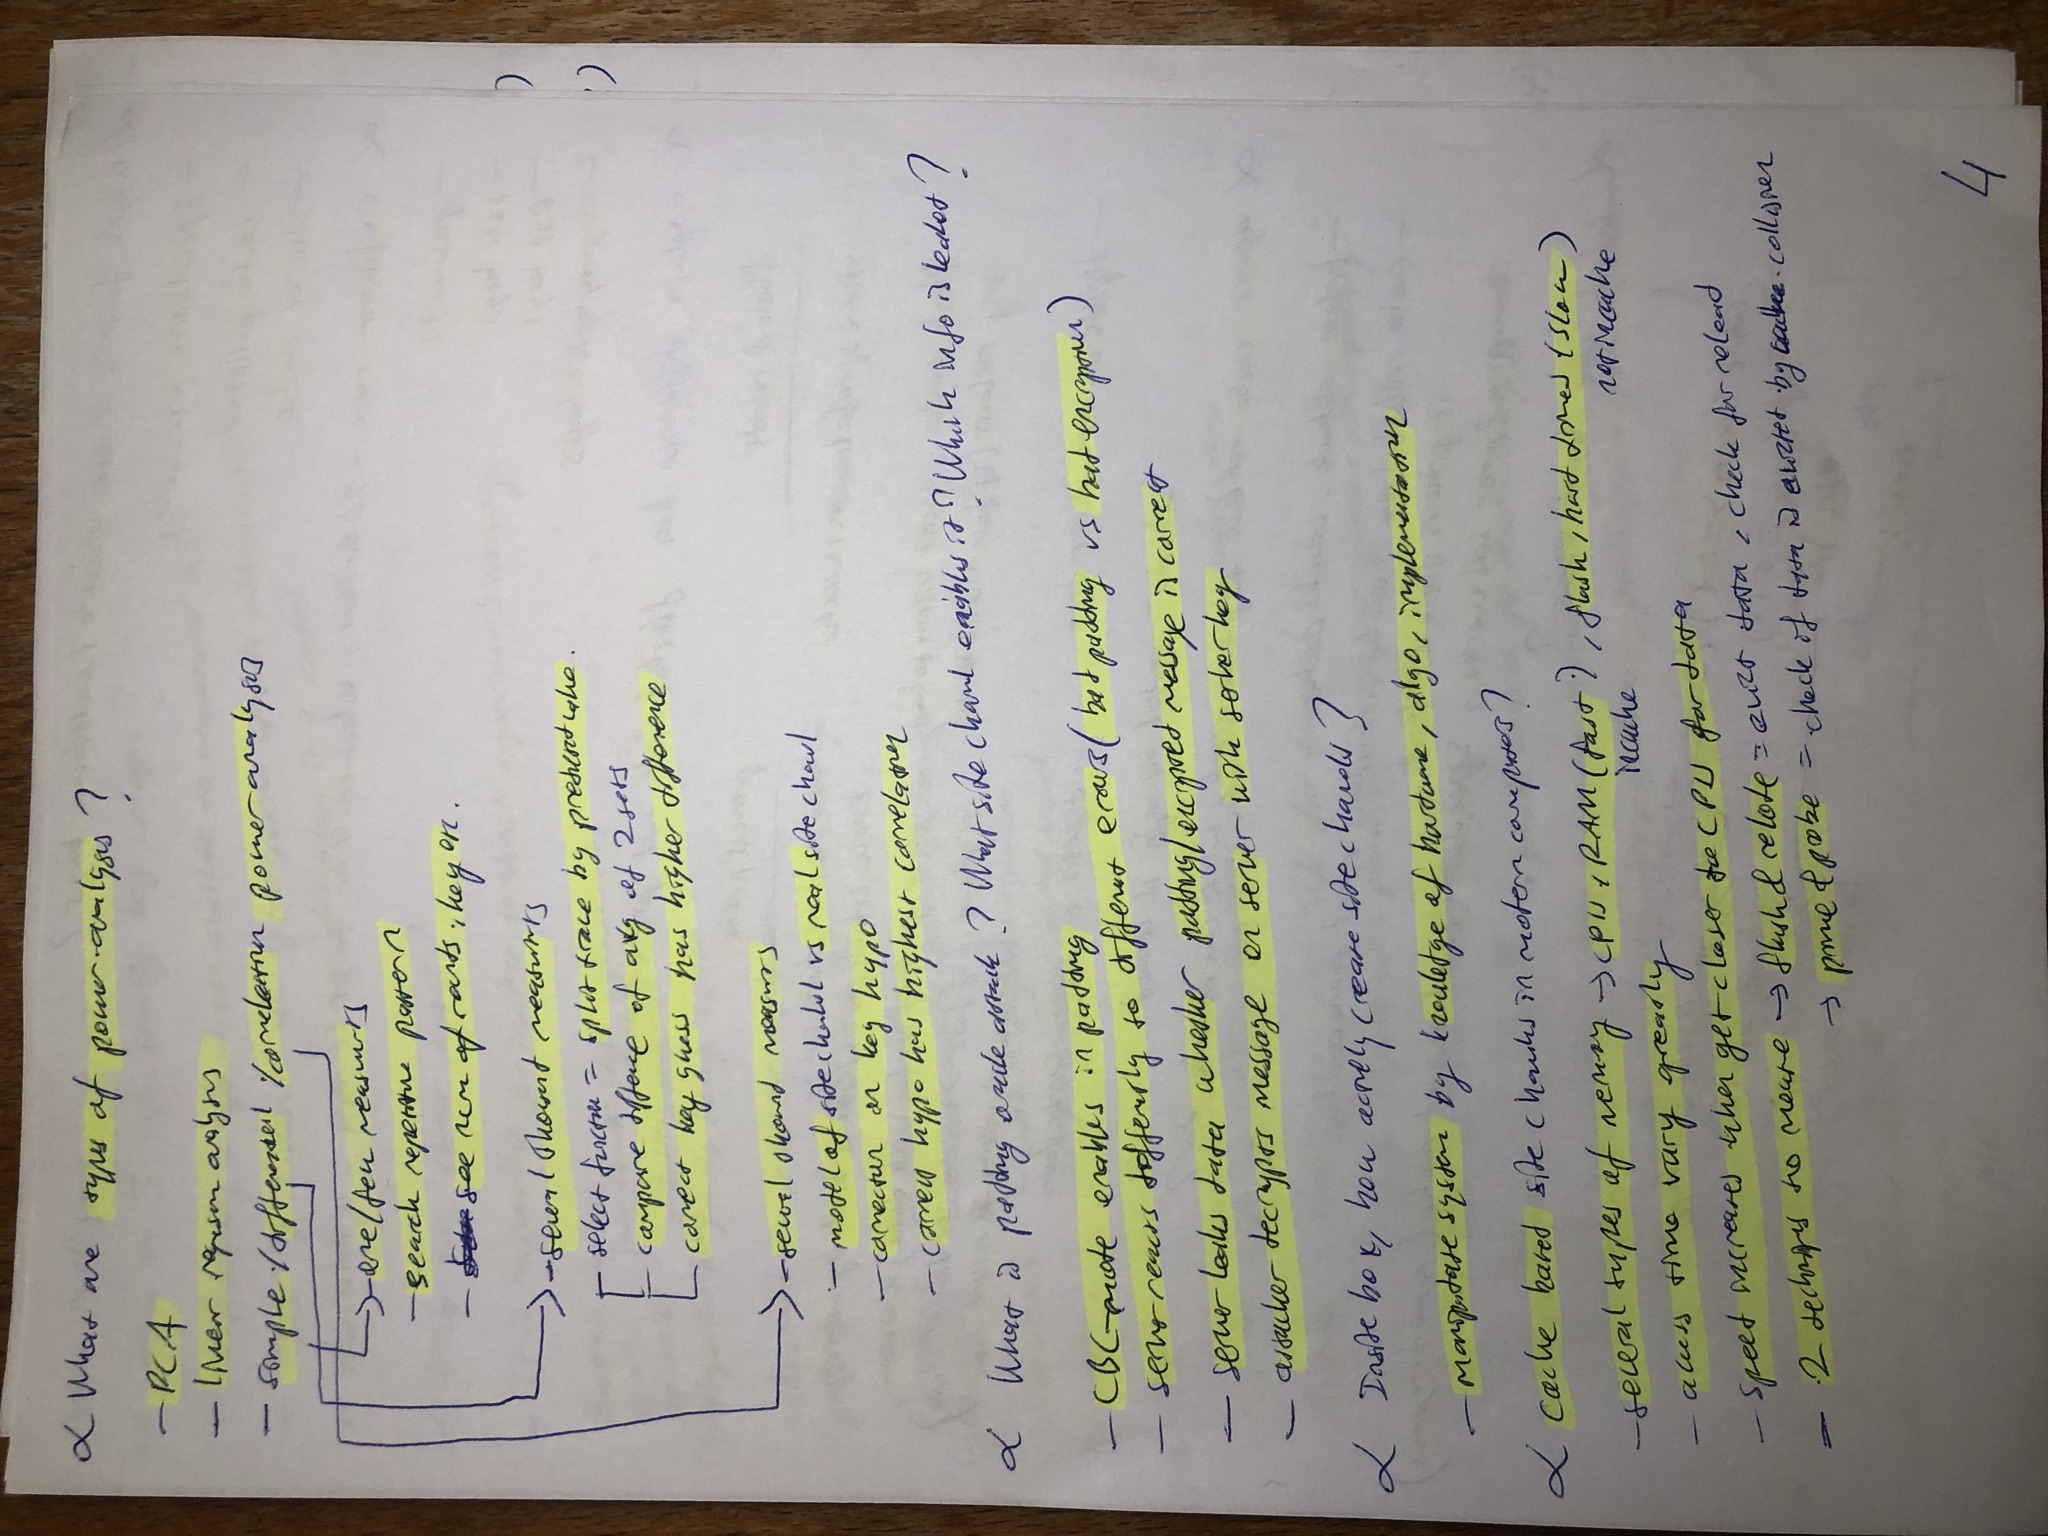 α What are types of power-analysis?
- PCA
- liner regresion analysis
- simple / differential / correlation power-analysis
→ - one/few measurs
- search repetetive pattern
- see num of rounts, key etc.
→ - several thousant measurs
- select function = split trace by predicted value.
- compare difference of avg of 2 sets
- correct key guess has higher difference
→ - several thousand measurs
- model of side chanul vs real side chanul
- correlation on key hypo
- correct hypo has highest correlation
α What is padding oracle attack? What side chanl enables it? Which info is leaked?
- CBC-mode enables in padding
- server reacts differently to different errors (bad padding vs bad encryption)
- server leaks data whether padding/encrypted message is correct
- attacker decrypts message on server with server key
α Inside box, how actively create side chanuls?
- manipulate system by knowledge of hardware, algo, implementation
α Cache based side chanuls in modern computers?
- several types of memory → CPU, RAM (fast), flash, hard drives (slow)
incache
not incache
- access time vary greatly
- speed increases when get closer to CPU for data
- 2 techniqs to measure → flush & relode = evict data, check for reload
→ prime & probe = check if data is evicted by collision
4